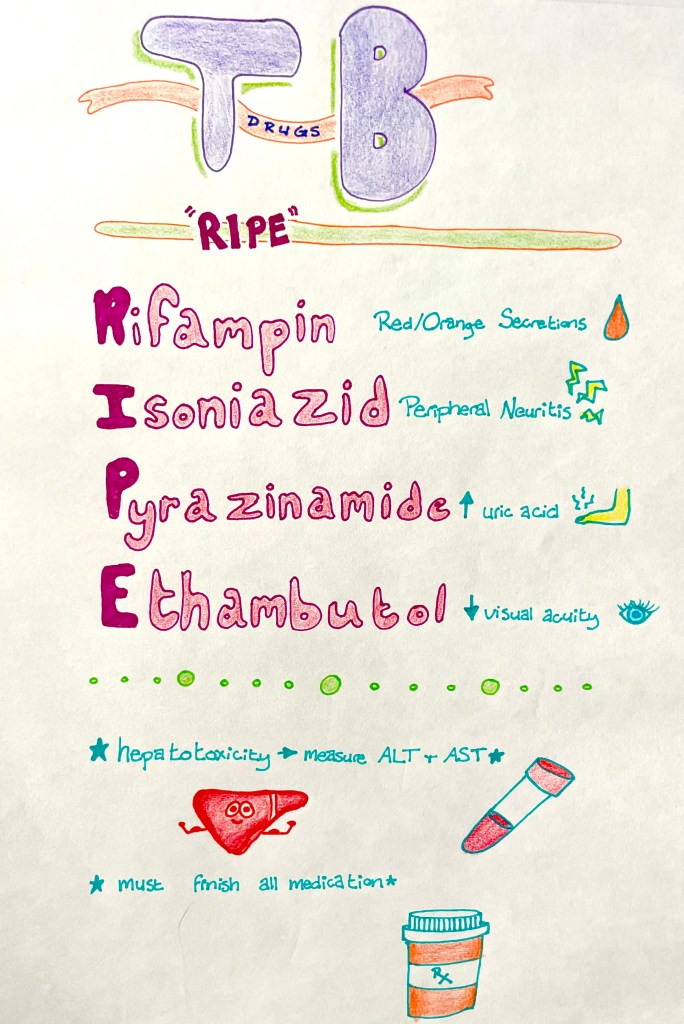 TB
DRUGS
"RIPE"
Rifampin Red/Orange Secretions
Isoniazid Peripheral Neuritis
Pyrazinamide ↑ uric acid
Ethambutol ↓ visual acuity
★ hepatotoxicity → measure ALT + AST ★
★ must finish all medication ★
Rx